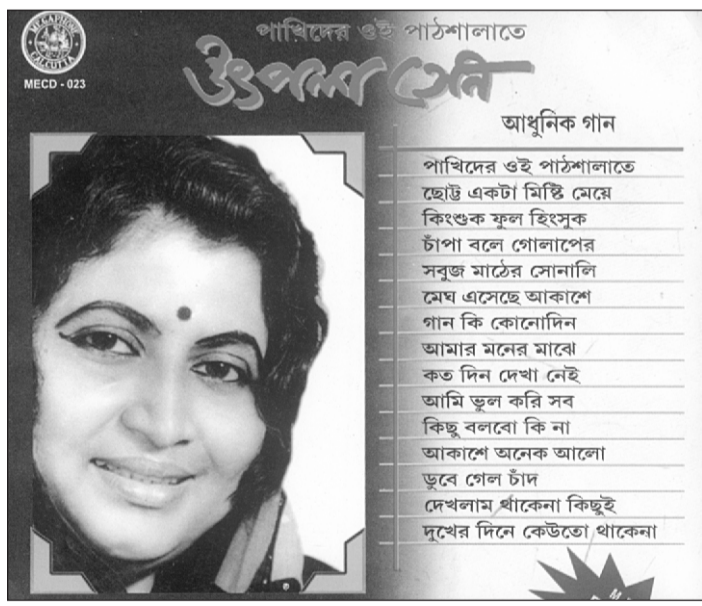 পাখিদের ওই পাঠশালাতে
উৎপলা সেন
CALCUTTA
MECD - 023
আধুনিক গান
পাখিদের ওই পাঠশালাতে
ছোট্ট একটা মিষ্টি মেয়ে
কিংশুক ফুল হিংসুক
চাঁপা বলে গোলাপের
সবুজ মাঠের সোনালি
মেঘ এসেছে আকাশে
গান কি কোনোদিন
আমার মনের মাঝে
কত দিন দেখা নেই
আমি ভুল করি সব
কিছু বলবো কি না
আকাশে অনেক আলো
ডুবে গেল চাঁদ
দেখলাম থাকেনা কিছুই
দুখের দিনে কেউতো থাকেনা